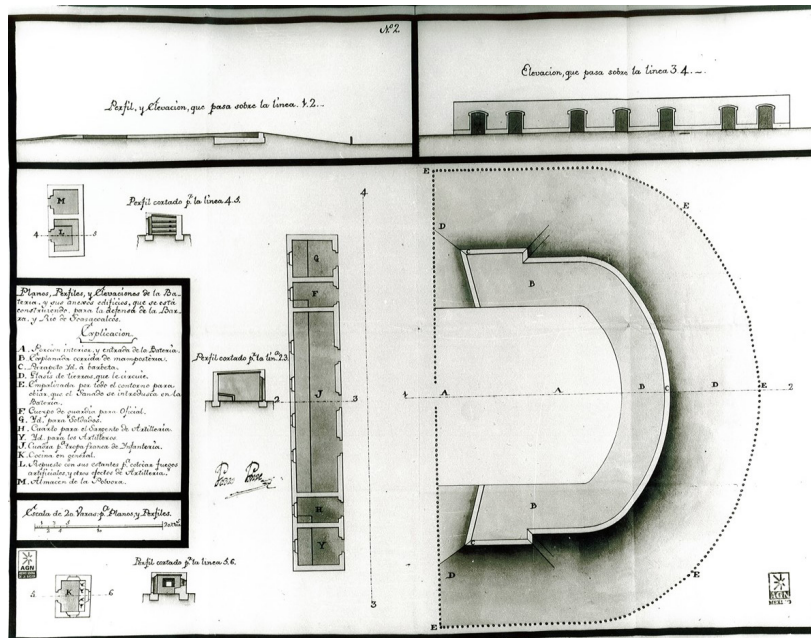 Nº 2.
Perfil, y Elevacion, que pasa sobre la linea 1.2.
Elevacion, que pasa sobre la linea 3.4.
M
L
4
5
Perfil cortado pr. la linea 4.5.
Planos, Perfiles, y Elevaciones de la Ba-
teria, y sus anexos edificios, que se está
construyendo, para la defensa de la Bar-
ra, y Rio de Goazacoalcos.
Explicacion.
A. Porcion interior, y entrada de la Bateria.
B. Explanada corrida de mamposteria.
C. Parapeto Yd. á barbeta.
D. Glasis de tierras, que le circuie.
E. Empalizada por todo el contorno para
obiar, que el Ganado se introdusca en la
Bateria.
F. Cuerpo de guardia para Oficial.
G. Yd. para Soldados.
H. Cuarto para el Sargento de Artilleria.
Y. Yd. para los Artilleros.
J. Cuadra pa. tropa franca de Infanteria.
K. Cocina en general.
L. Repuesto con sus estantes pa. colocar fuegos
artificiales, y otros efectos de Artilleria.
M. Almacen de la Polvora.
Escala de 20 Varas pa. Planos, y Perfiles.
Perfil cortado pr. la lin.a 2.3.
2
3
4
G
F
J
H
Y
3
AGN
K
5
6
Perfil cortado pr. la linea 5.6.
E
E
D
B
1
A
A
B
C
D
E
2
B
D
E
E
AGN